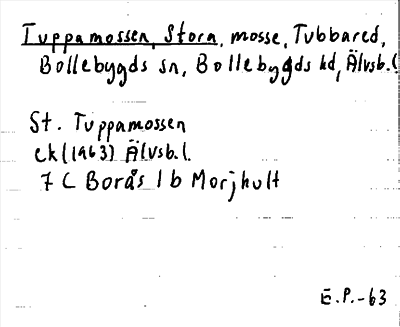 Tuppamossen, Stora, mosse, Tubbared,
Bollebygds sn, Bollebygds hd, Älvsb.l.
St. Tuppamossen
ek (1963) Älvsb.l.
7 C Borås 1 b Morjhult
E.P.-63